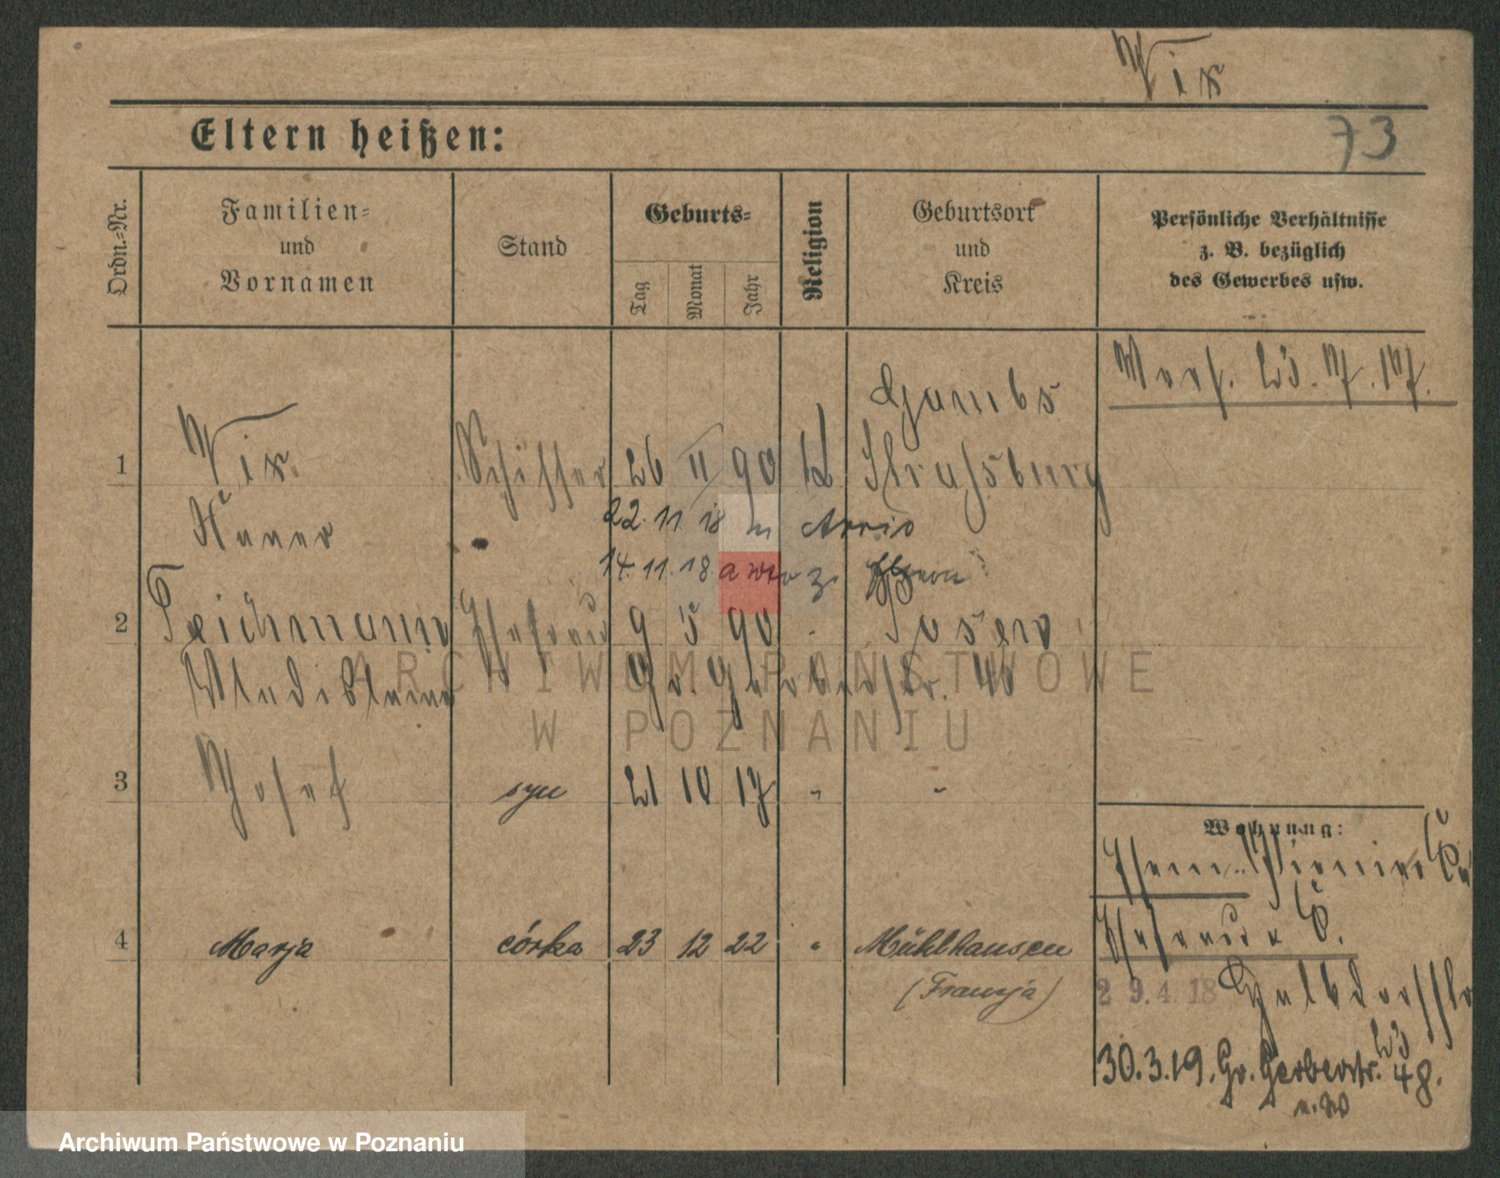 Vix
Eltern heißen:
73
Ordn.=Nr.
Familien=
und
Vornamen
Stand
Geburts=
Tag
Monat
Jahr
Religion
Geburtsort
und
Kreis
Persönliche Verhältnisse
z. B. bezüglich
des Gewerbes usw.
Gambs
1 Vix Schiffer 26 II 90 Strassburg
Xaver
22. 11 18 n
14. 11. 18.
2 Teichmann Ehefrau 9 5 90 Posen
Wladislawa Gr. Gerberstr. 46
3 Josef syn 21 10 17 "
4 Marja córka 23 12 22 " Mühlhausen
(Francja)
Wohnung:
Ehem.
Ehefrau
2 9. 4. 18
30. 3. 19. Gr. Gerberstr. 48.
ARCHIWUM PAŃSTWOWE
W POZNANIU
Archiwum Państwowe w Poznaniu